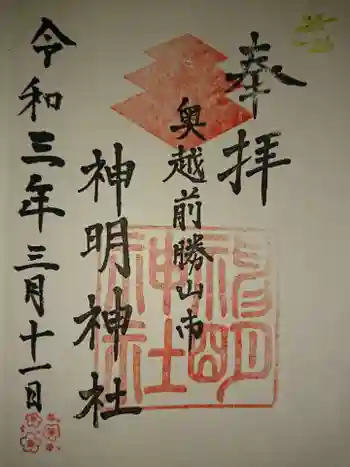 奉拝
奥越前勝山市
神明神社
令和三年三月十一日
神明
神社